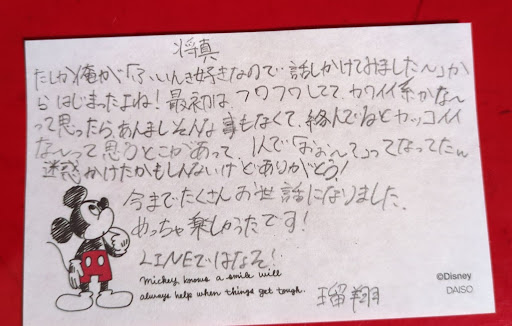 将真
たしか俺が「ふいんき好きなので話しかけてみました〜」か
らはじまったよね!最初は、フワフワしてて、カワイイ系かな〜
って思ったら、あんましそんな事もなくて、絡んでるとカッコイイ
な〜って思うとこがあって、1人で「おぉ〜て」ってなってたw
迷惑かけたかもしんないけどありがとう!
今までたくさんお世話になりました。
めっちゃ楽しかったです!
LINEではなそ!
Mickey knows a smile will
always help when things get tough.
瑠翔
©Disney
DAISO